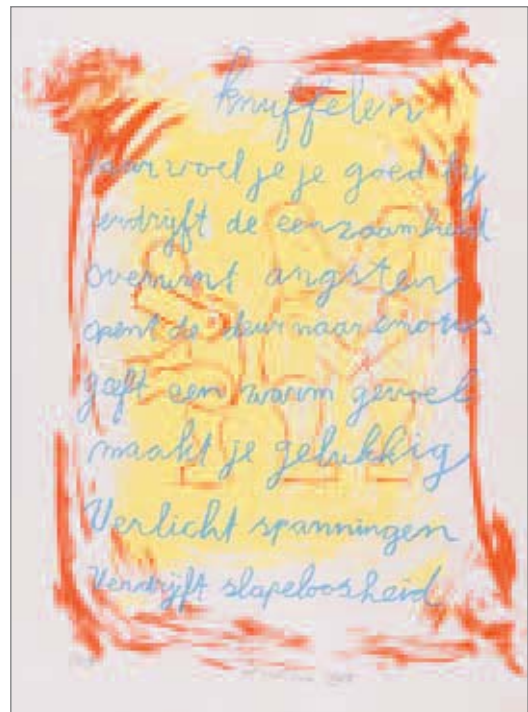 knuffelen
daar voel je je goed by
verdrijft de eenzaamheid
overwint angsten
opent de deur naar emoties
geeft een warm gevoel
maakt je gelukkig
Verlicht spanningen
Verdrijft slapeloosheid